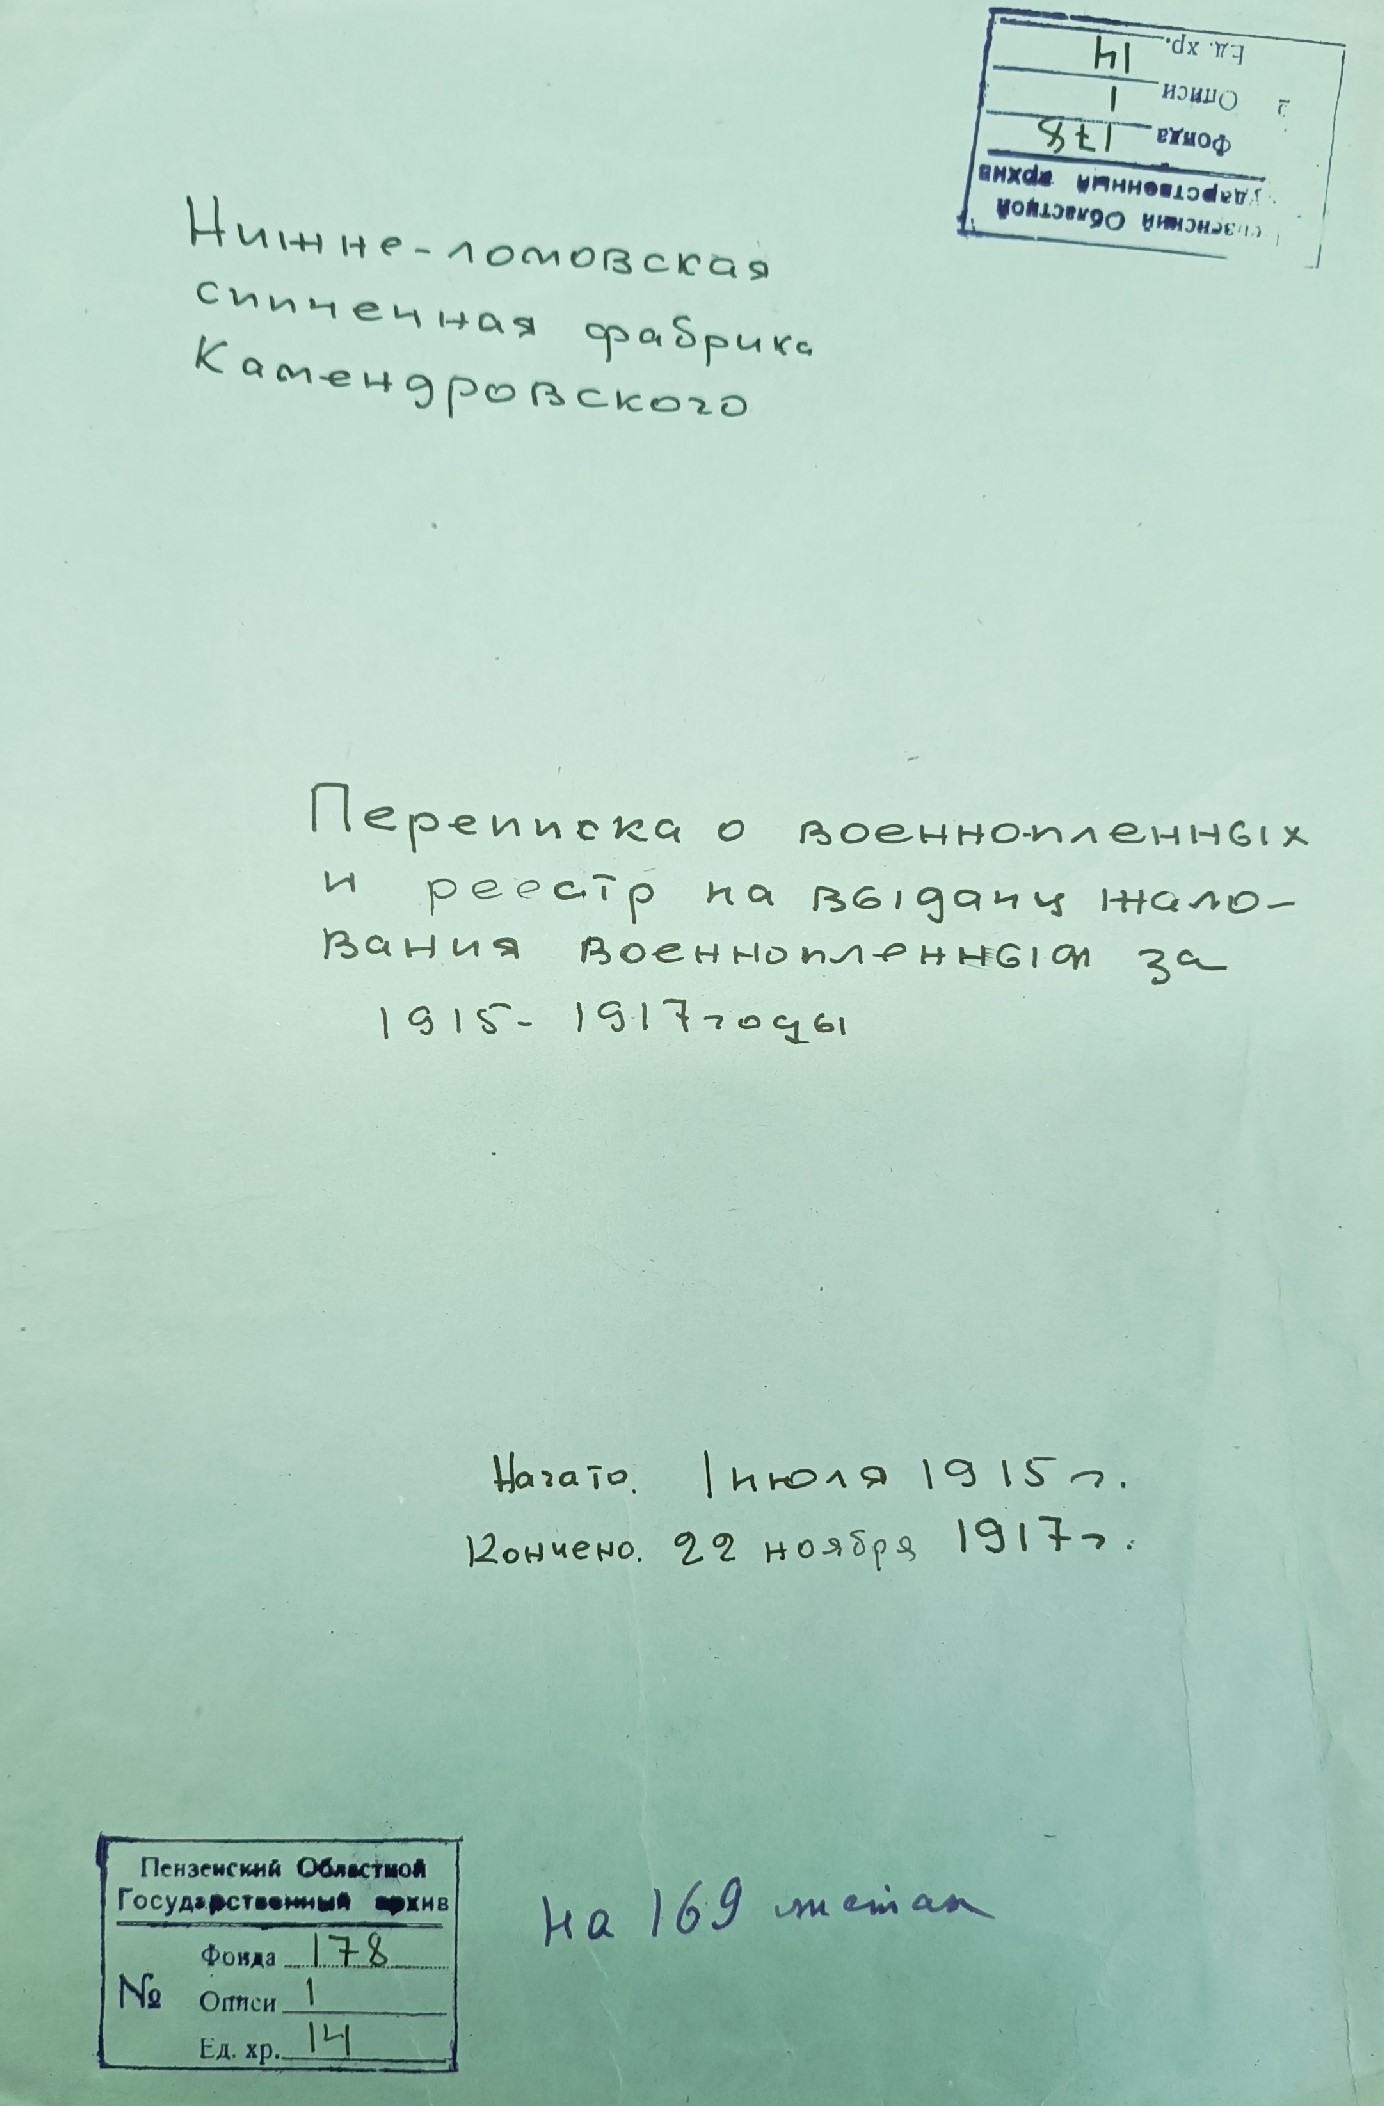 Пензенский Областной
Государственный архив
Фонда 178
Описи 1
Ед. хр. 14
Нижне-ломовская
спичечная фабрика
Камендровского
Переписка о военнопленных
и реестр на выдачу жало-
вания военнопленным за
1915- 1917 годы
Начато. 1 июля 1915 г.
Кончено. 22 ноября 1917 г.
Пензенский Областной
Государственный архив
Фонда 178
№ Описи 1
Ед. хр. 14
на 169 листах